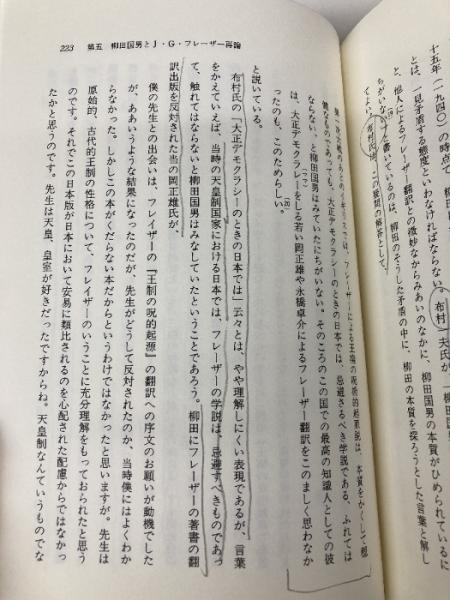 十五年(一九四〇)の時点で、柳田
とは、一見矛盾する態度といわなければならない。布村一夫氏が、
と、他人によるフレーザー翻訳との微妙なからみあいのなかに、柳田国男の本質がひめられている
ちがいないと書いているのは、柳田のそうした矛盾の中に、柳田の本質を探ろうとした言葉と解し
てよい。布村氏は、この疑問の解答として、
223 第五 柳田国男とJ・G・フレーザー再論
第一次大戦のあとのイギリスでは、フレーザーによる王権の呪術的起源説は、本質をかくして穏
健なものであっても、大正デモクラシーのときの日本では、忌避さるべき学説である、ふれては
ならない、と柳田国男はみていたにちがいない。そのころのこの国での最高の知識人としての彼
は、大正デモクレーをしる若い岡正雄や永橋卓介によるフレーザー翻訳をこのましく思わなか
ったのも、このためらしい。
と説いている。
布村氏の「大正デモクラシーのときの日本では」云々とは、やや理解しにくい表現であるが、言葉
をかえていえば、当時の天皇制国家における日本では、フレーザーの学説は、忌避すべきものであっ
て、触れてはならないと柳田国男はみなしていたということであろう。柳田にフレーザーの著書の翻
訳出版を反対された当の岡正雄氏が、
僕の先生との出会いは、フレイザーの『王制の呪的起源』の翻訳への序文のお願いが動機でした
が、ああいうような結果になったのだが、先生がどうして反対されたのか、当時僕にはよくわか
らなかった。しかしこの本がくだらない本だからというわけではなかったと思いますが。先生は
原始的、古代的王制の性格について、フレイザーのいうことに充分理解をもっておられたと思う
のです。それでこの日本版が日本において安易に類比されるのを心配された配慮からではなかっ
たかと思うのです。先生は天皇、皇室が好きだったですからね。天皇制なんていうものでな